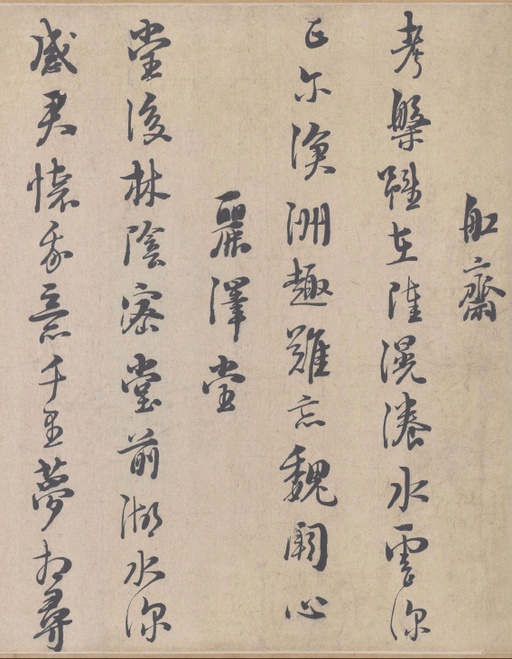 舡齋
考槃雖在陸滉瀁水雲深
正尓滄洲趣難忘魏闕心
麗澤堂
堂後林陰密堂前湖水深
感君懷我意千里夢相尋